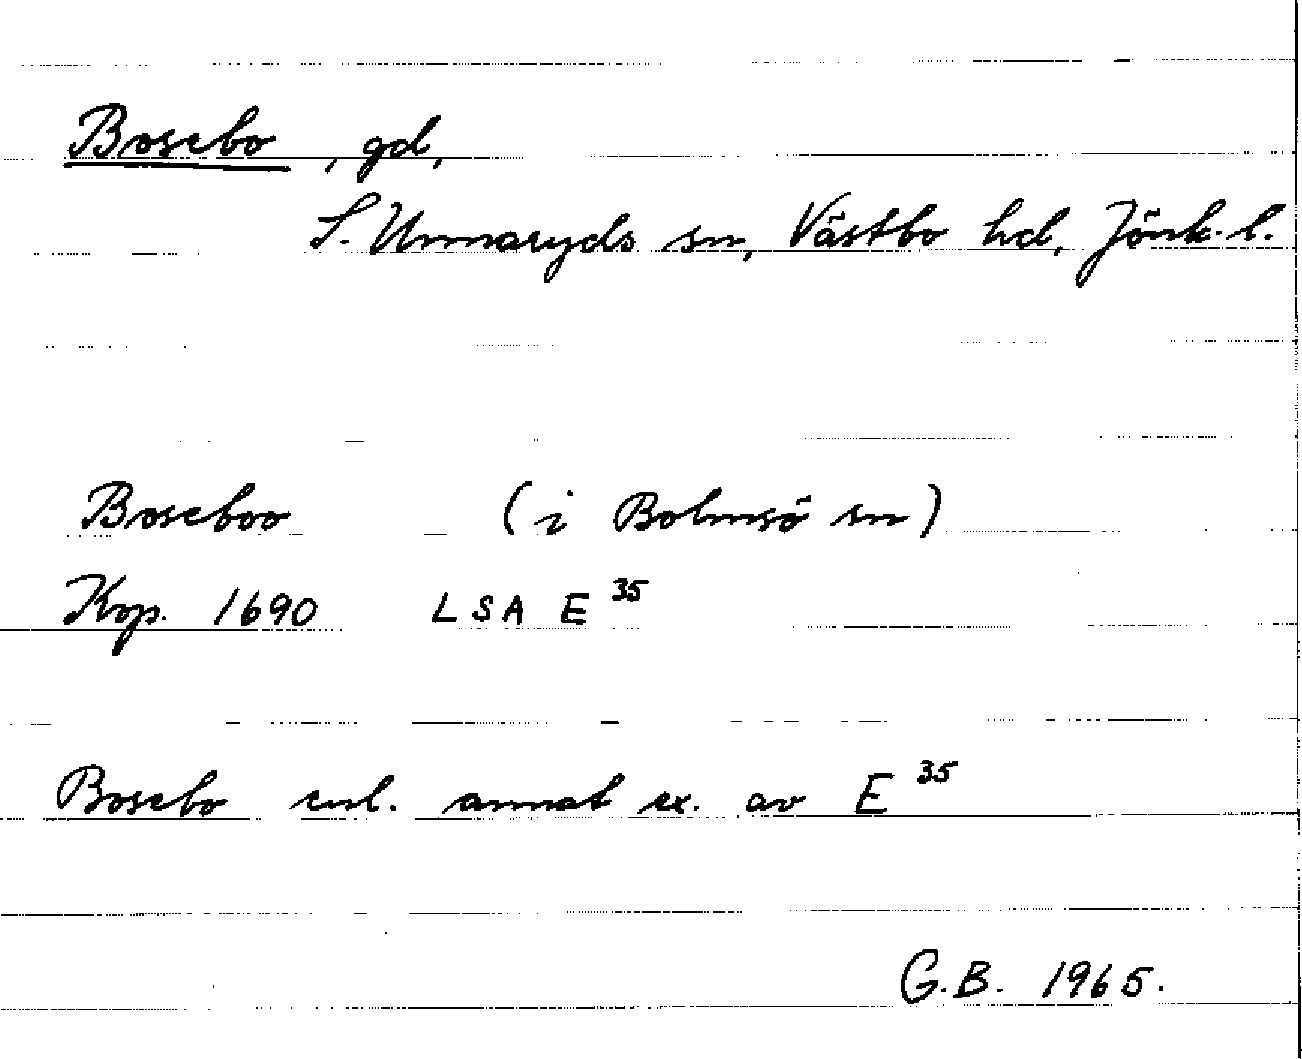 Bosebo, gd,
S. Unnaryds sn, Västbo hd, Jönk. l.
Boseboo (i Bolmsö sn)
Kop. 1690 LSA E 35
Bosebo enl. annat ex. av E 35
G.B. 1965.